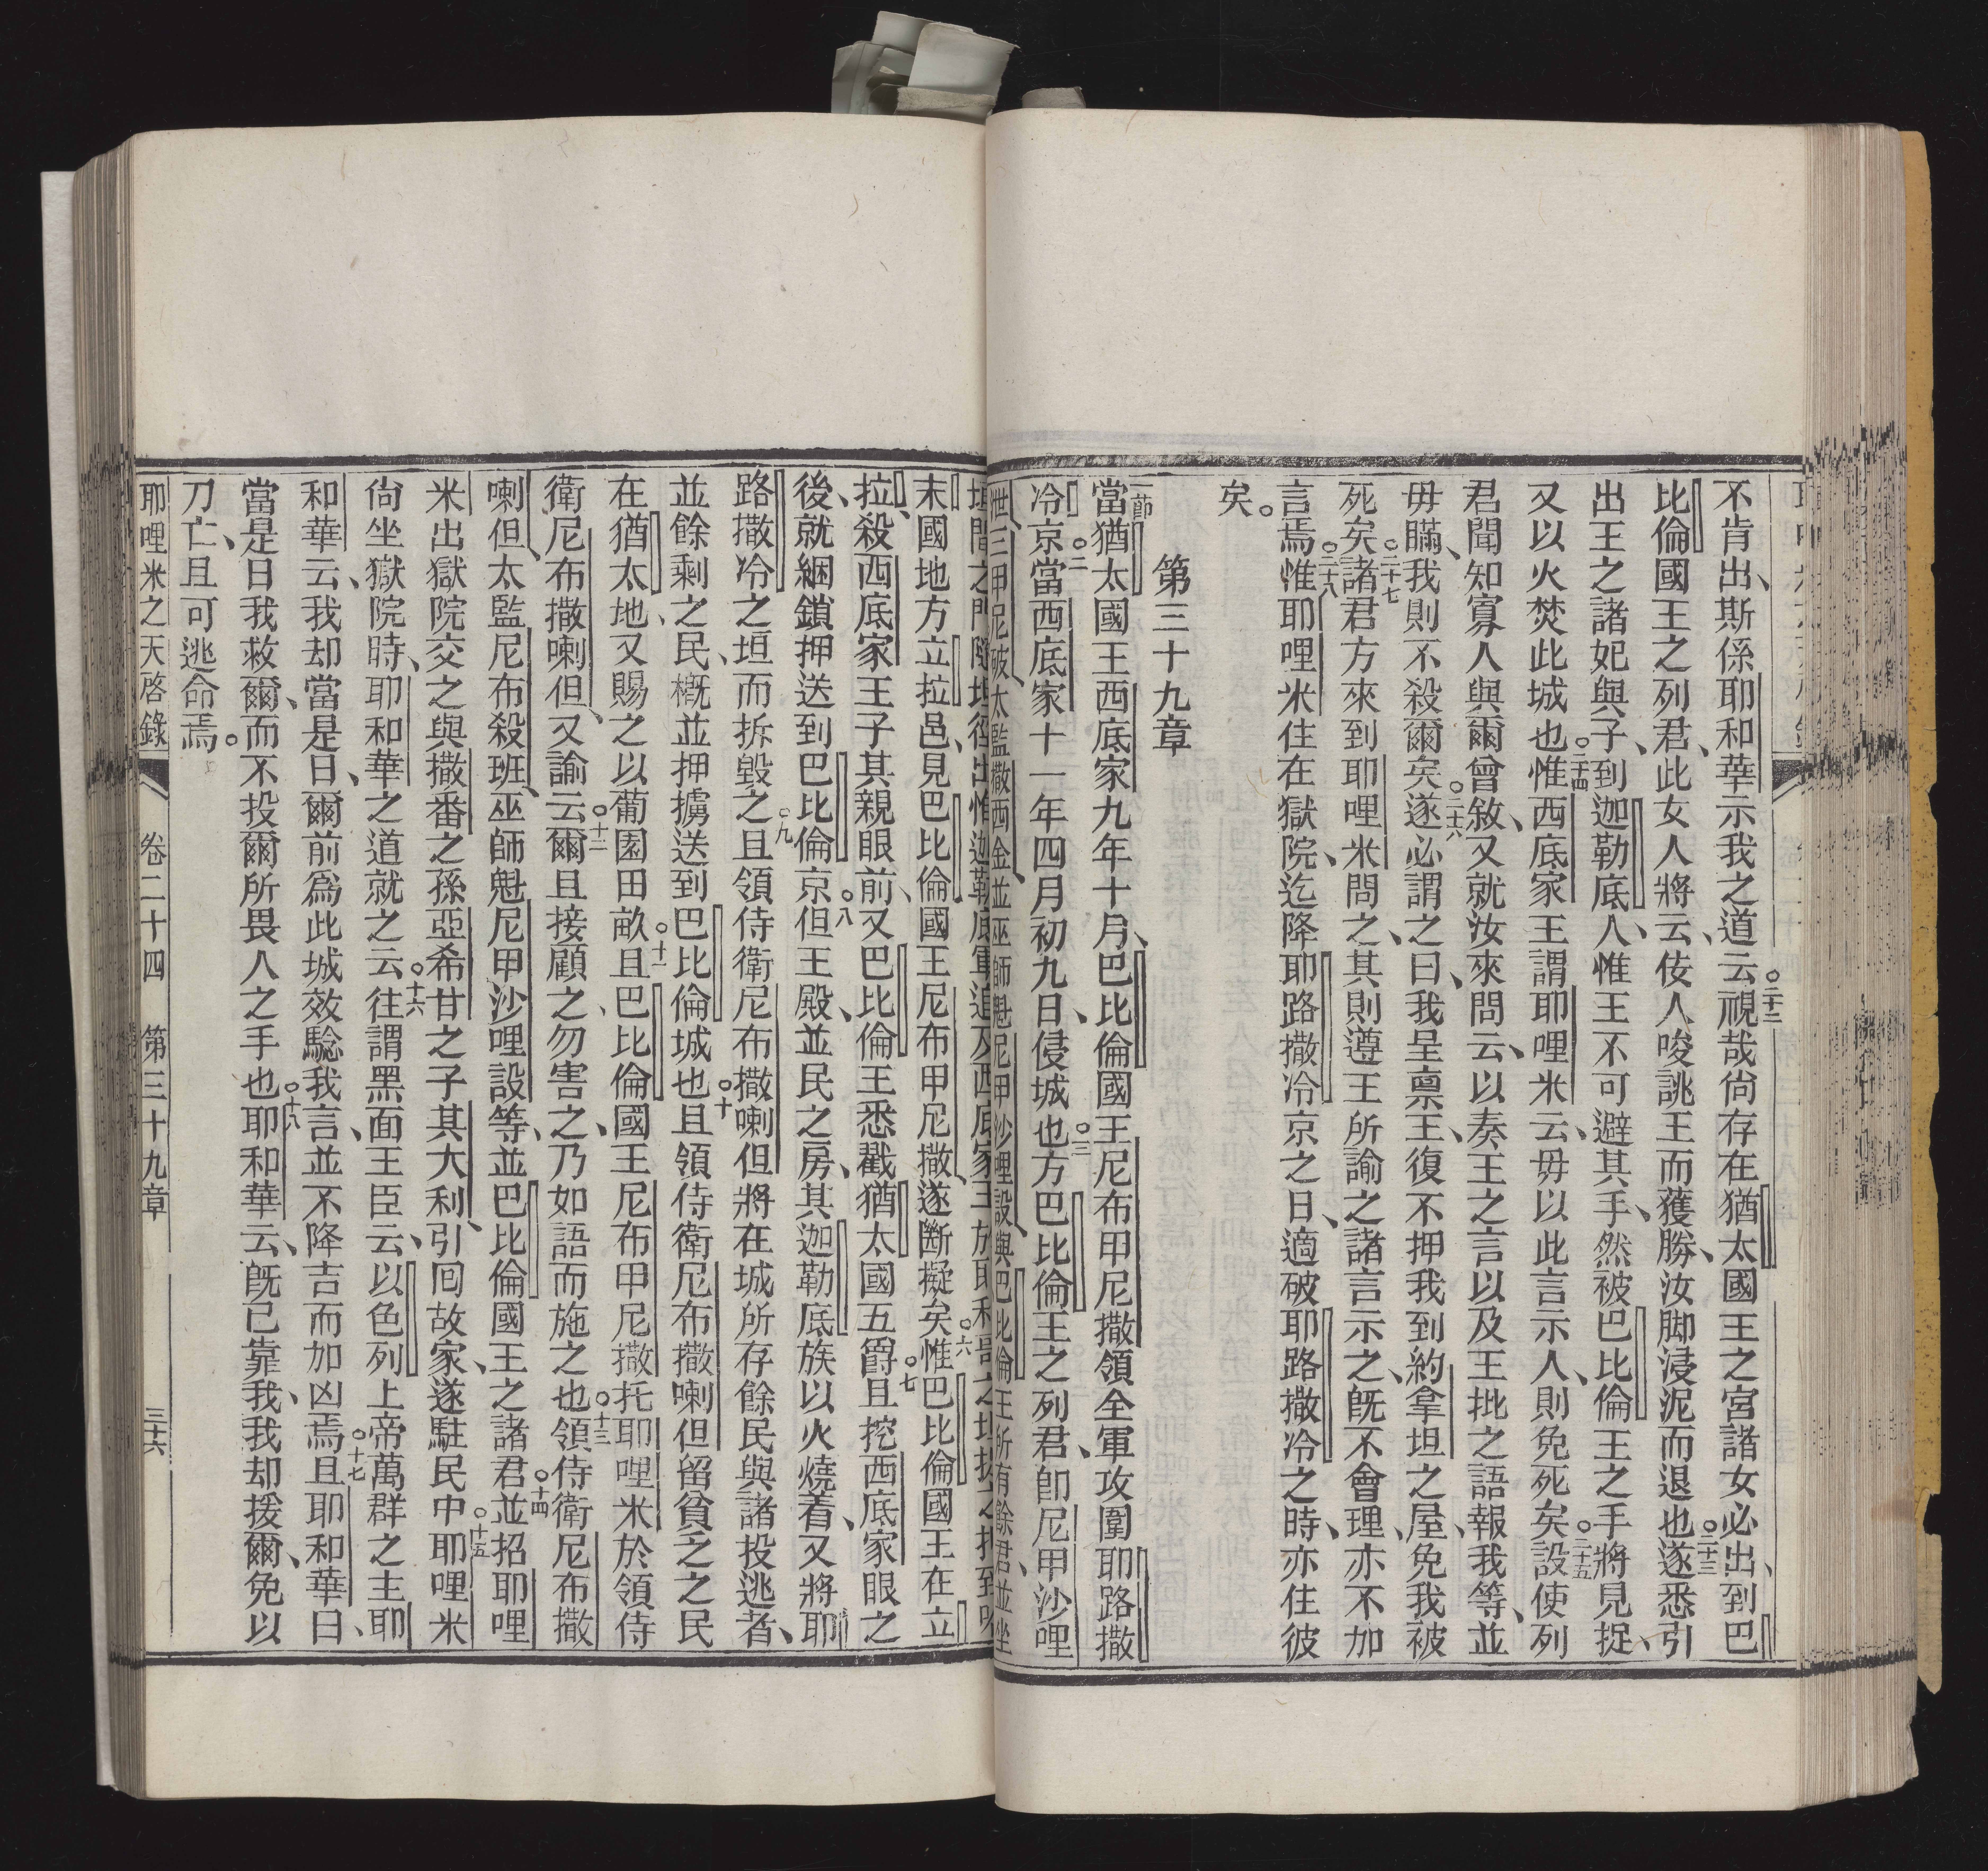 不肯出、斯係耶和華示我之道云。二十二視哉尙存在猶太國王之宮諸女必出、到巴
比倫國王之列君、此女人將云、伎人唆誂王而獲勝、汝脚浸泥而退也。二十三遂悉引
出王之諸妃與子、到迦勒底人、惟王不可避其手、然被巴比倫王之手將見捉、
又以火焚此城也。二十四惟西底家王謂耶哩米云、毋以此言示人、則免死矣。二十五設使列
君聞知寡人與爾曾敘、又就汝來問云、以奏王之言以及王批之語、報我等、並
毋瞞、我則不殺爾矣。二十六遂必謂之曰、我呈禀王、復不押我到約拿坦之屋、免我被
死矣。二十七諸君方來到耶哩米問之、其則遵王所諭之諸言示之、旣不會理、亦不加
言焉。二十八惟耶哩米住在獄院、迄降耶路撒冷京之日、適破耶路撒冷之時、亦住彼
矣。
第三十九章
一節當猶太國王西底家九年十月、巴比倫國王尼布甲尼撒領全軍攻圍耶路撒
冷京。二當西底家十一年四月初九日、侵城也。三方巴比倫王之列君、卽尼甲沙哩
泄三甲尼破太監撒西金並巫師魁尼甲沙哩設、與巴比倫王所有餘君、並坐
垣間之門
末國地方立拉邑、見巴比倫國王尼布甲尼撒、遂斷擬矣。六惟巴比倫國王在立
拉、殺西底家王子其親眼前、又巴比倫王悉戳猶太國五爵。七且挖西底家眼之
後、就綑鎖押送到巴比倫京。八但王殿、並民之房、其迦勒底族以火燒着、又將耶
路撒冷之垣而拆毀之。九且領侍衛尼布撒喇但將在城所存餘民與諸投逃者、
並餘剩之民、槪並押擄送到巴比倫城也。十且領侍衛尼布撒喇但留貧乏之民
在猶太地、又賜之以葡園田畝。十一且巴比倫國王尼布甲尼撒托耶哩米於領侍
衛尼布撒喇但、又諭云。十二爾且接顧之、勿害之、乃如語而施之也。十三領侍衛尼布撒
喇但、太監尼布殺班、巫師魁尼甲沙哩設等、並巴比倫國王之諸君。十四並招耶哩
米出獄院交之與撒番之孫亞希甘之子其大利、引囘故家、遂駐民中。十五耶哩米
尙坐獄院時、耶和華之道就之云。十六往謂黑面王臣云、以色列上帝萬群之主耶
和華云、我却當是日、爾前爲此城效騐我言、並不降吉而加凶焉。十七且耶和華曰、
當是日我救爾、而不投爾所畏人之手也。十八耶和華云、旣已靠我、我却援爾、免以
刀亡、且可逃命焉。
耶哩米之天啓錄 卷二十四 第三十九章 三十六